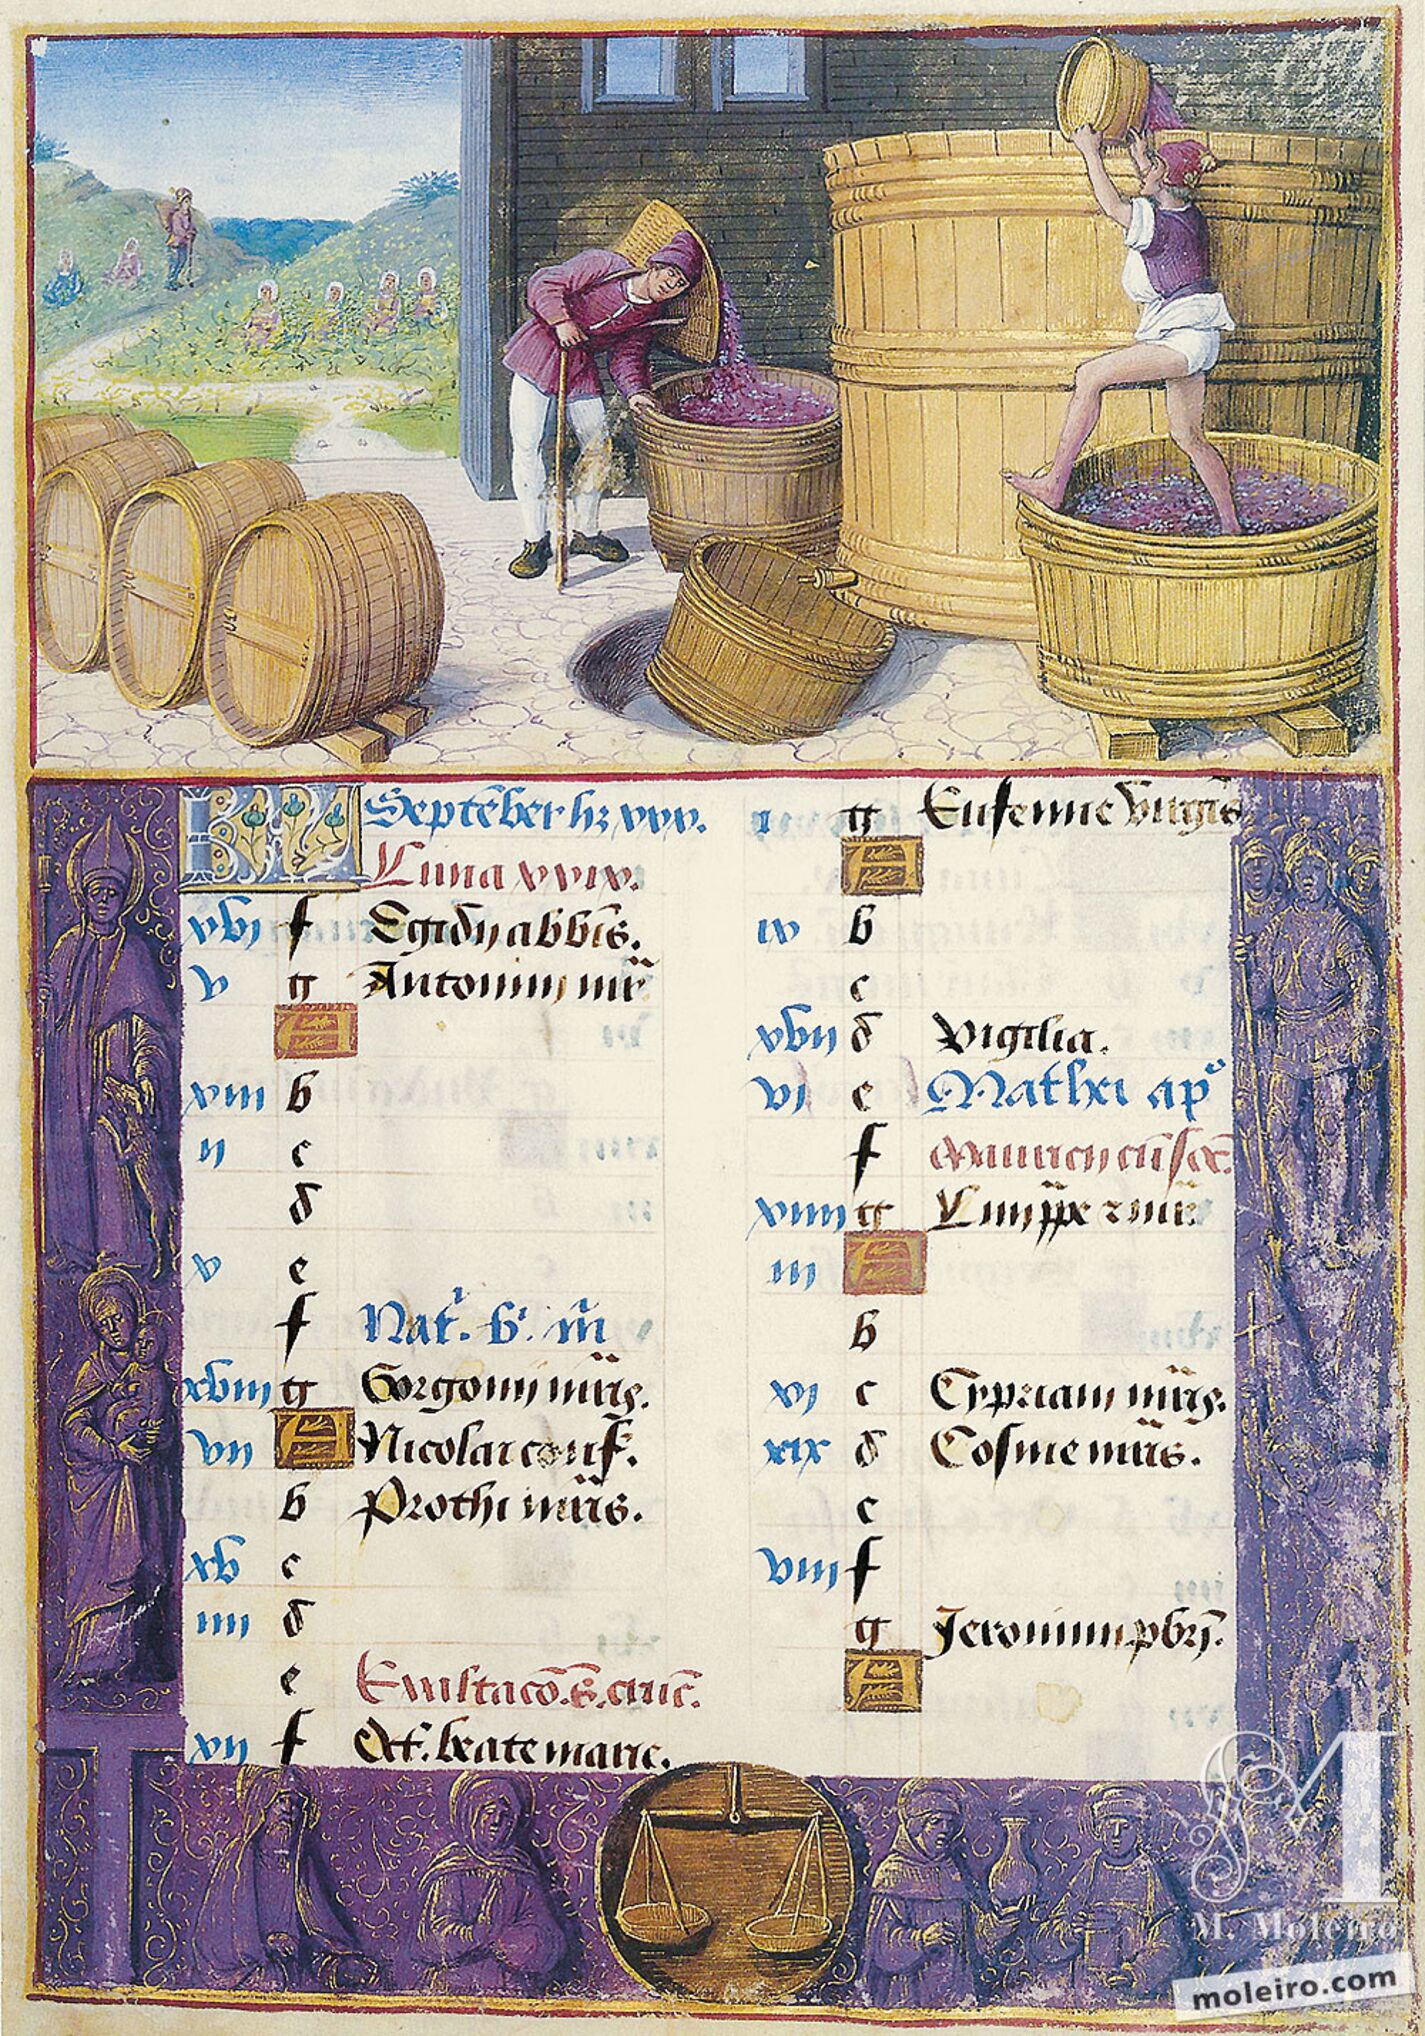 KL Septēber hꝫ xxx.
Luna xxix.
xvi f Egidij abbis.
v g Antonini mr̄
A
xiii b
ii c
d
x e
f Natͥ. bͤ. m̄
xviii g Gorgonij mr̄is.
vii A Nicolai conf.
b Prothi mr̄is.
xv c
iiii d
e Exaltacō. s. cruc̄.
xii f Oct. beate marie.
i g Eufemie virgīs
A
ix b
c
xvii d Vigilia.
vi e Mathei apº
f Mauricij cū soc̄.
xiiii g Lini pp̄e z mr̄.
iii A
b
xi c Cypriani mr̄is.
xix d Cosme mr̄is.
e
viii f
g Jeronimi pbr̄i.
A
M. Moleiro
moleiro.com